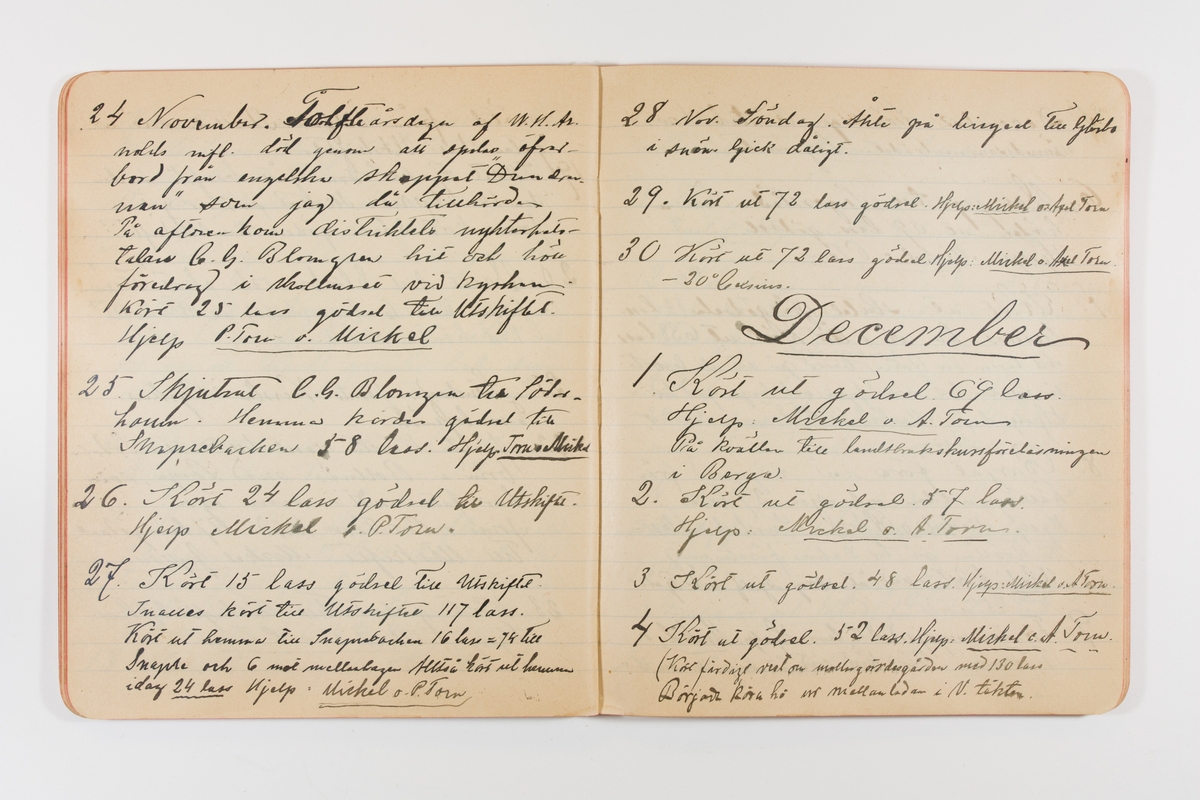 24 November. Tolfte årsdagen af W.H. Ar-
nolds mfl. död genom att spolas öfver
bord från engelska skeppet "Dundon-
nan" som jag då tillhörde
På aftonen kom distriktets nykterhets-
talare C.G. Blomgren hit och höll
föredrag i skolhuset vid kyrkan.
Kört 25 lass gödsel till Utskiftet.
Hjelp P. Torn o. Mickel
25. Skjutsat C.G. Blomgren till Söder-
hamn. Hemma kördes gödsel till
Snaprebacken 58 lass. Hjelp. Torn o Mickel
26. Kört 24 lass gödsel till Utskiftet.
Hjelp Mickel o. P. Torn.
27. Kört 15 lass gödsel till Utskiftet.
Inalles kört till Utskiftet 117 lass.
Kört ut hemma till Snaprebacken 16 lass = 74 till
Snapre och 6 mot mellanhagen Alltså kört ut hemma
idag 24 lass Hjelp: Mickel o. P. Torn
28 Nov. Söndag. Åkte på hvigeel till
i snön. Gick dåligt.
29. Kört ut 72 lass gödsel. Hjelp: Mickel o Axel Torn
30 Kört ut 72 lass gödsel Hjelp: Mickel o. Axel Torn.
– 20° Celsius.
December
1. Kört ut gödsel 69 lass.
Hjelp: Mickel o. A. Torn
På kvällen till landtbrukskursföreläsningen
i Berga.
2. Kört ut gödsel. 57 lass.
Hjelp: Mickel o. A. Torn.
3 Kört ut gödsel. 48 lass. Hjelp: Mickel o. A Torn.
4 Kört ut gödsel. 52 lass. Hjelp: Mickel o. A. Torn.
(Kört färdigt vest om med 130 lass
Började köra hö ur mellanladan i V. täkten.